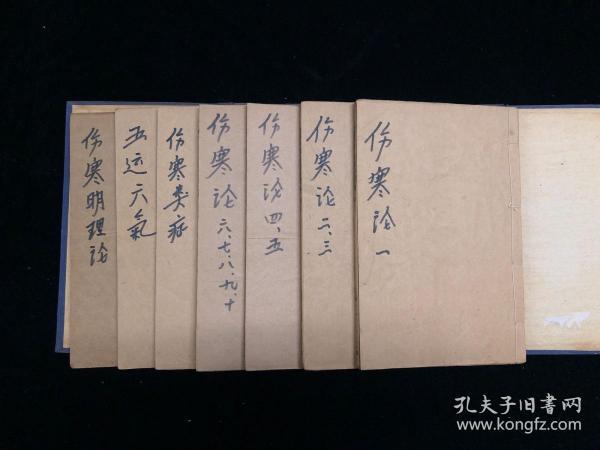 伤寒论一
伤寒论二、三
伤寒论四、五
伤寒论六、七、八、九、十
伤寒类症
五运六氣
伤寒明理论
孔夫子旧書网
www.kongfz.com